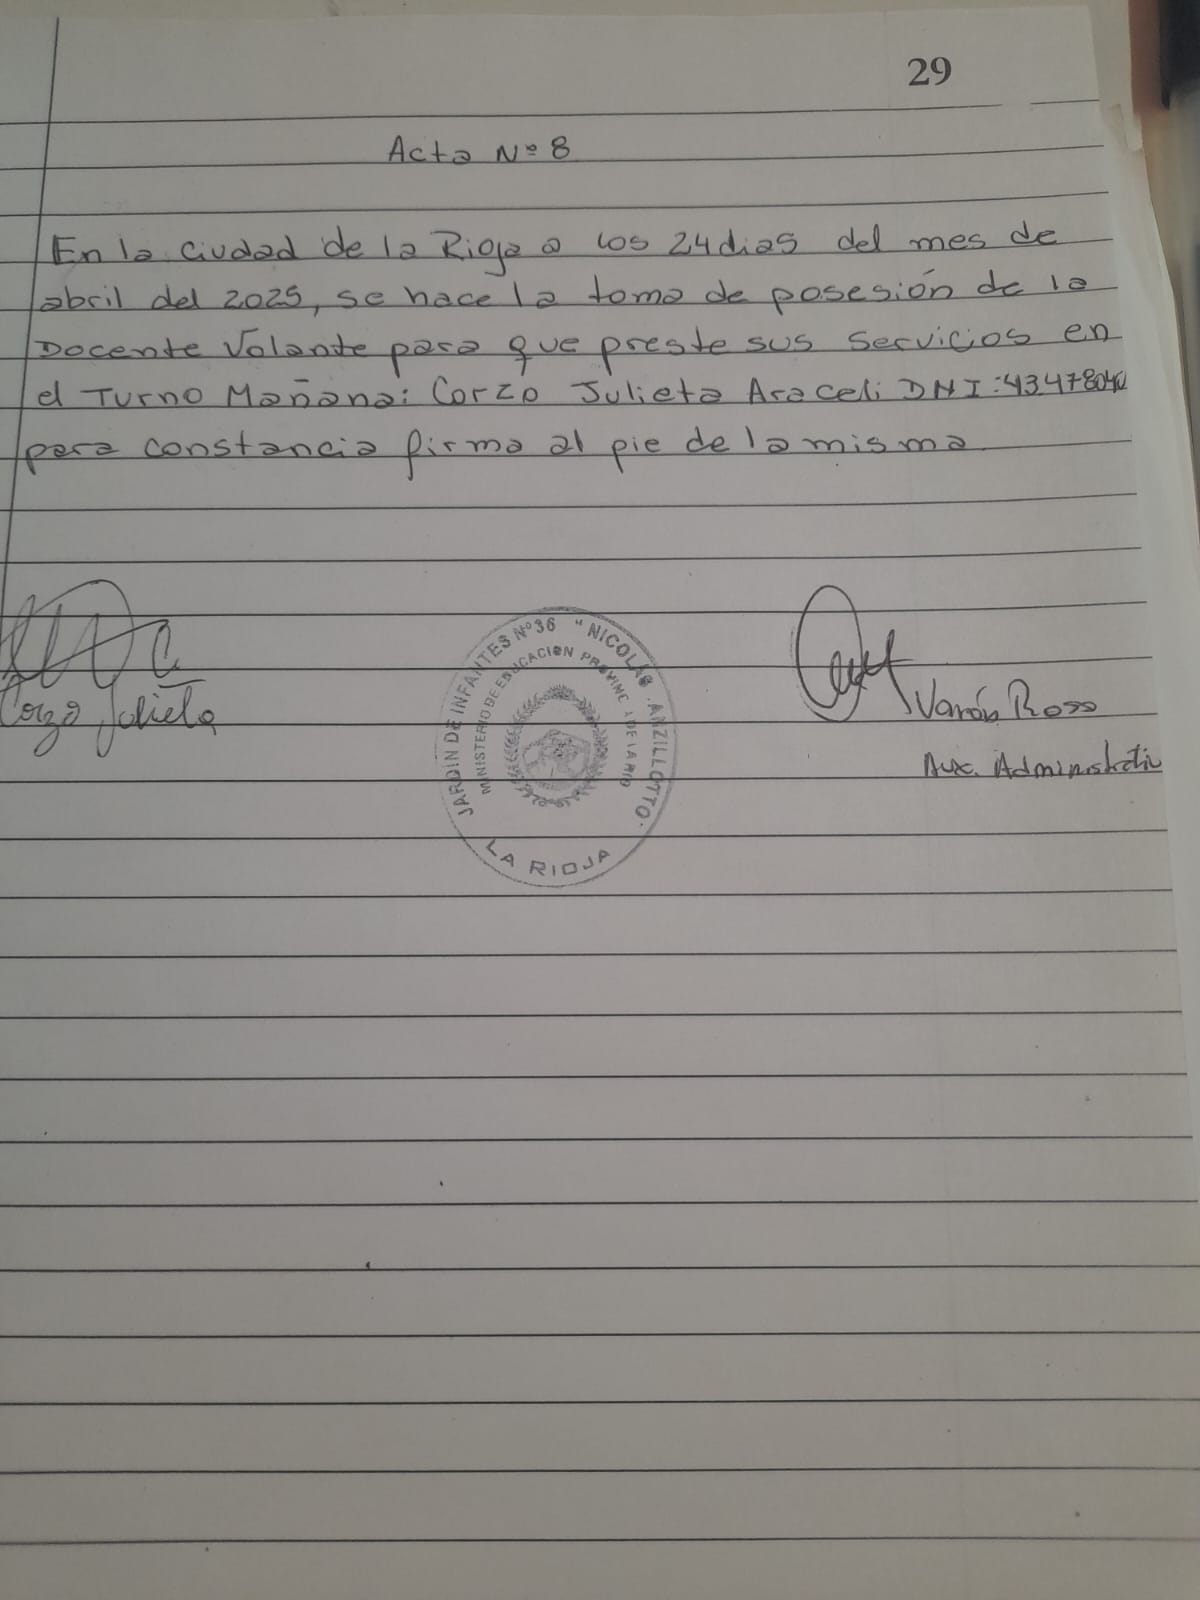 29
Acta Nº 8
En la Ciudad de la Rioja a los 24 dias del mes de
abril del 2025, se hace la toma de posesión de la
Docente Volante para que preste sus Servicios en
el Turno Mañana: Corzo Julieta Araceli DNI:
para constancia firma al pie de la misma
Corzo Julieta
Aux. Administrativ
JARDIN DE INFANTES Nº36 "NICOLAS LANZILLOTTO"
MINISTERIO DE EDUCACION PROVINC DE LA RIO
LA RIOJA